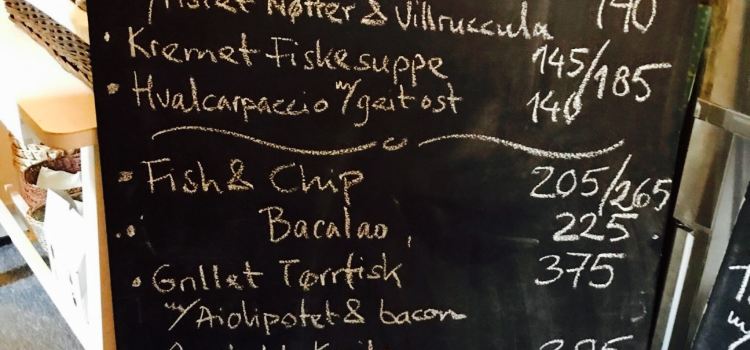 Nøtter & Villruccula 140
• Kremet Fiskesuppe 145/185
• Hvalcarpaccio m/geitost 140
• Fish & Chip 205/265
• Bacalao 225
• Grillet Tørrfisk 375
m/Aiolipotet & bacon